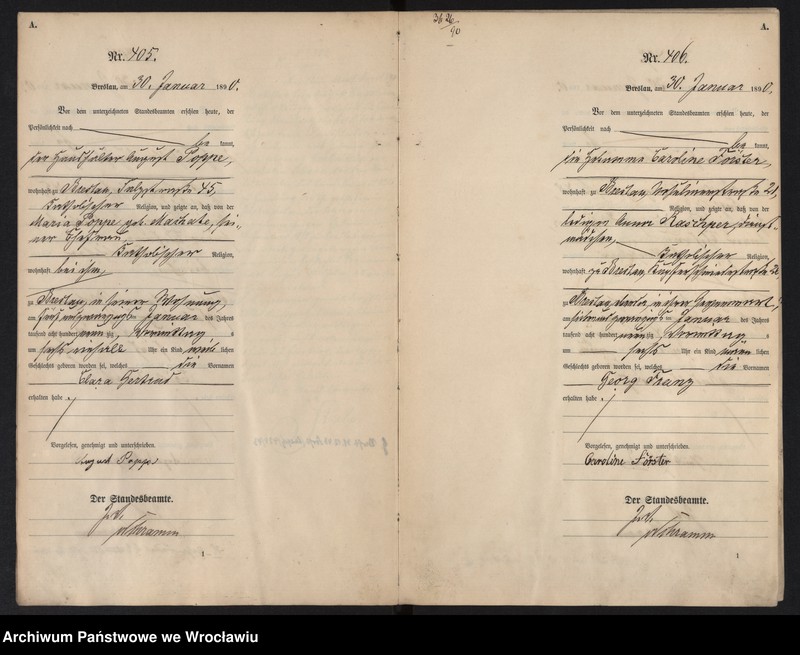 A.
Nr. 405.
Breslau, am 30. Januar 1890.
Vor dem unterzeichneten Standesbeamten erschien heute, der
Persönlichkeit nach
be kannt,
der Haushälter August Poppe,
wohnhaft zu Breslau, 45
katholischer Religion, und zeigte an, daß von der
Maria Poppe geb. Machate, sei-
ner Ehefrau,
katholischer Religion,
wohnhaft bei ihm,
zu Breslau, in seiner Wohnung,
am fünfundzwanzigsten Januar des Jahres
tausend acht hundert neun zig Vormittag s
um sechs einhalb Uhr ein Kind weib lichen
Geschlechts geboren worden sei, welches die Vornamen
Clara Gertrud
erhalten habe.
Vorgelesen, genehmigt und unterschrieben.
August Poppe
Der Standesbeamte.
J.V.
Schramm
1
36 26
90
A.
Nr. 406.
Breslau, am 30. Januar 1890.
Vor dem unterzeichneten Standesbeamten erschien heute, der
Persönlichkeit nach
be kannt,
die Hebamme Caroline Förster,
wohnhaft zu Breslau, 21,
Religion, und zeigte an, daß von der
ledigen Anna Raschper, Dienst-
mädchen,
katholischer Religion,
wohnhaft zu Breslau, Kupferschmiedestraße
zu Breslau, in ihrer Gegenwart,
am siebenundzwanzigsten Januar des Jahres
tausend acht hundert neun zig Vormittag s
um sechs Uhr ein Kind männ lichen
Geschlechts geboren worden sei, welches die Vornamen
Georg Franz
erhalten habe.
Vorgelesen, genehmigt und unterschrieben.
Caroline Förster
Der Standesbeamte.
J.V.
Schramm
1
Archiwum Państwowe we Wrocławiu